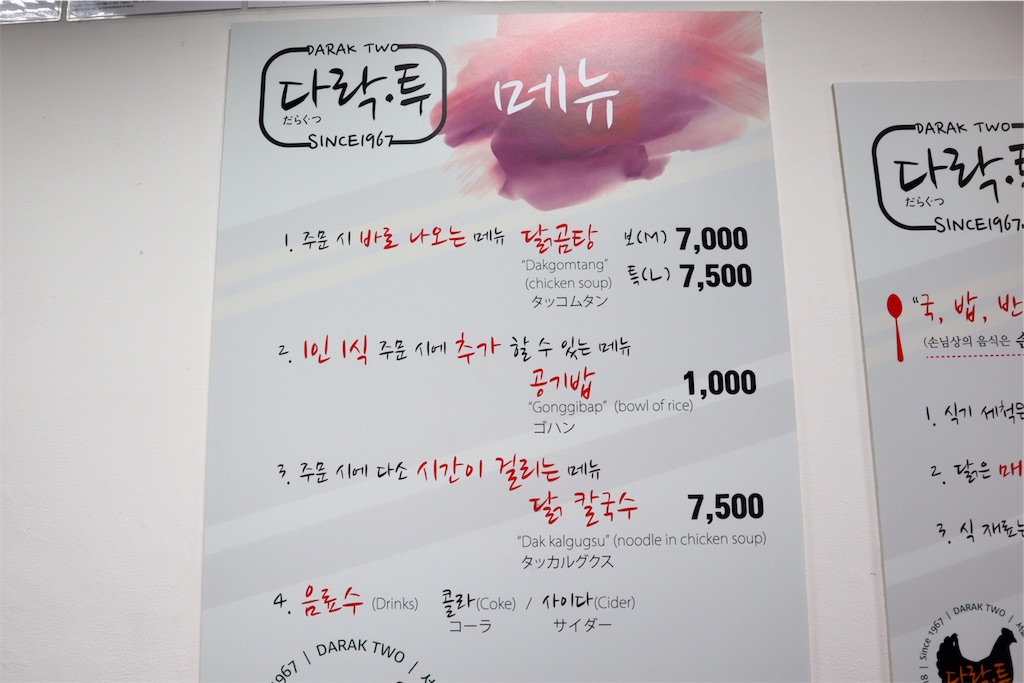 DARAK TWO
다락.투
だらぐつ
SINCE1967
메뉴
1. 주문 시 바로 나오는 메뉴 닭곰탕 보(M) 7,000
"Dakgomtang" 특(L) 7,500
(chicken soup)
タッコムタン
2. 1인 1식 주문 시에 추가 할 수 있는 메뉴
공기밥 1,000
"Gonggibap" (bowl of rice)
ゴハン
3. 주문 시에 다소 시간이 걸리는 메뉴
닭 칼국수 7,500
"Dak kalgugsu" (noodle in chicken soup)
タッカルグクス
4. 음료수 (Drinks) 콜라(Coke) / 사이다(Cider)
コーラ サイダー
1967 | DARAK TWO |
DARAK TWO
다락.투
だらぐつ
SINCE1967
"국, 밥, 반
(손님상의 음식은
1. 식기 세척
2. 닭은
3. 식 재료는
Since 1967 | DARAK TWO |
다락.투